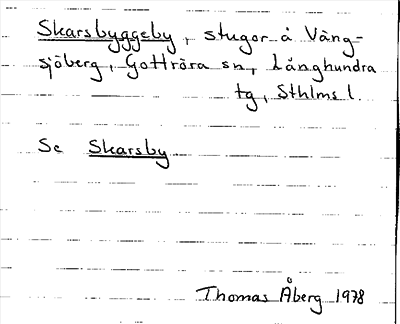 Skarsbyggeby, stugor å Väng-
sjöberg, Gottröra sn, Långhundra
tg, Sthlms l.
Se Skarsby
Thomas Åberg 1978